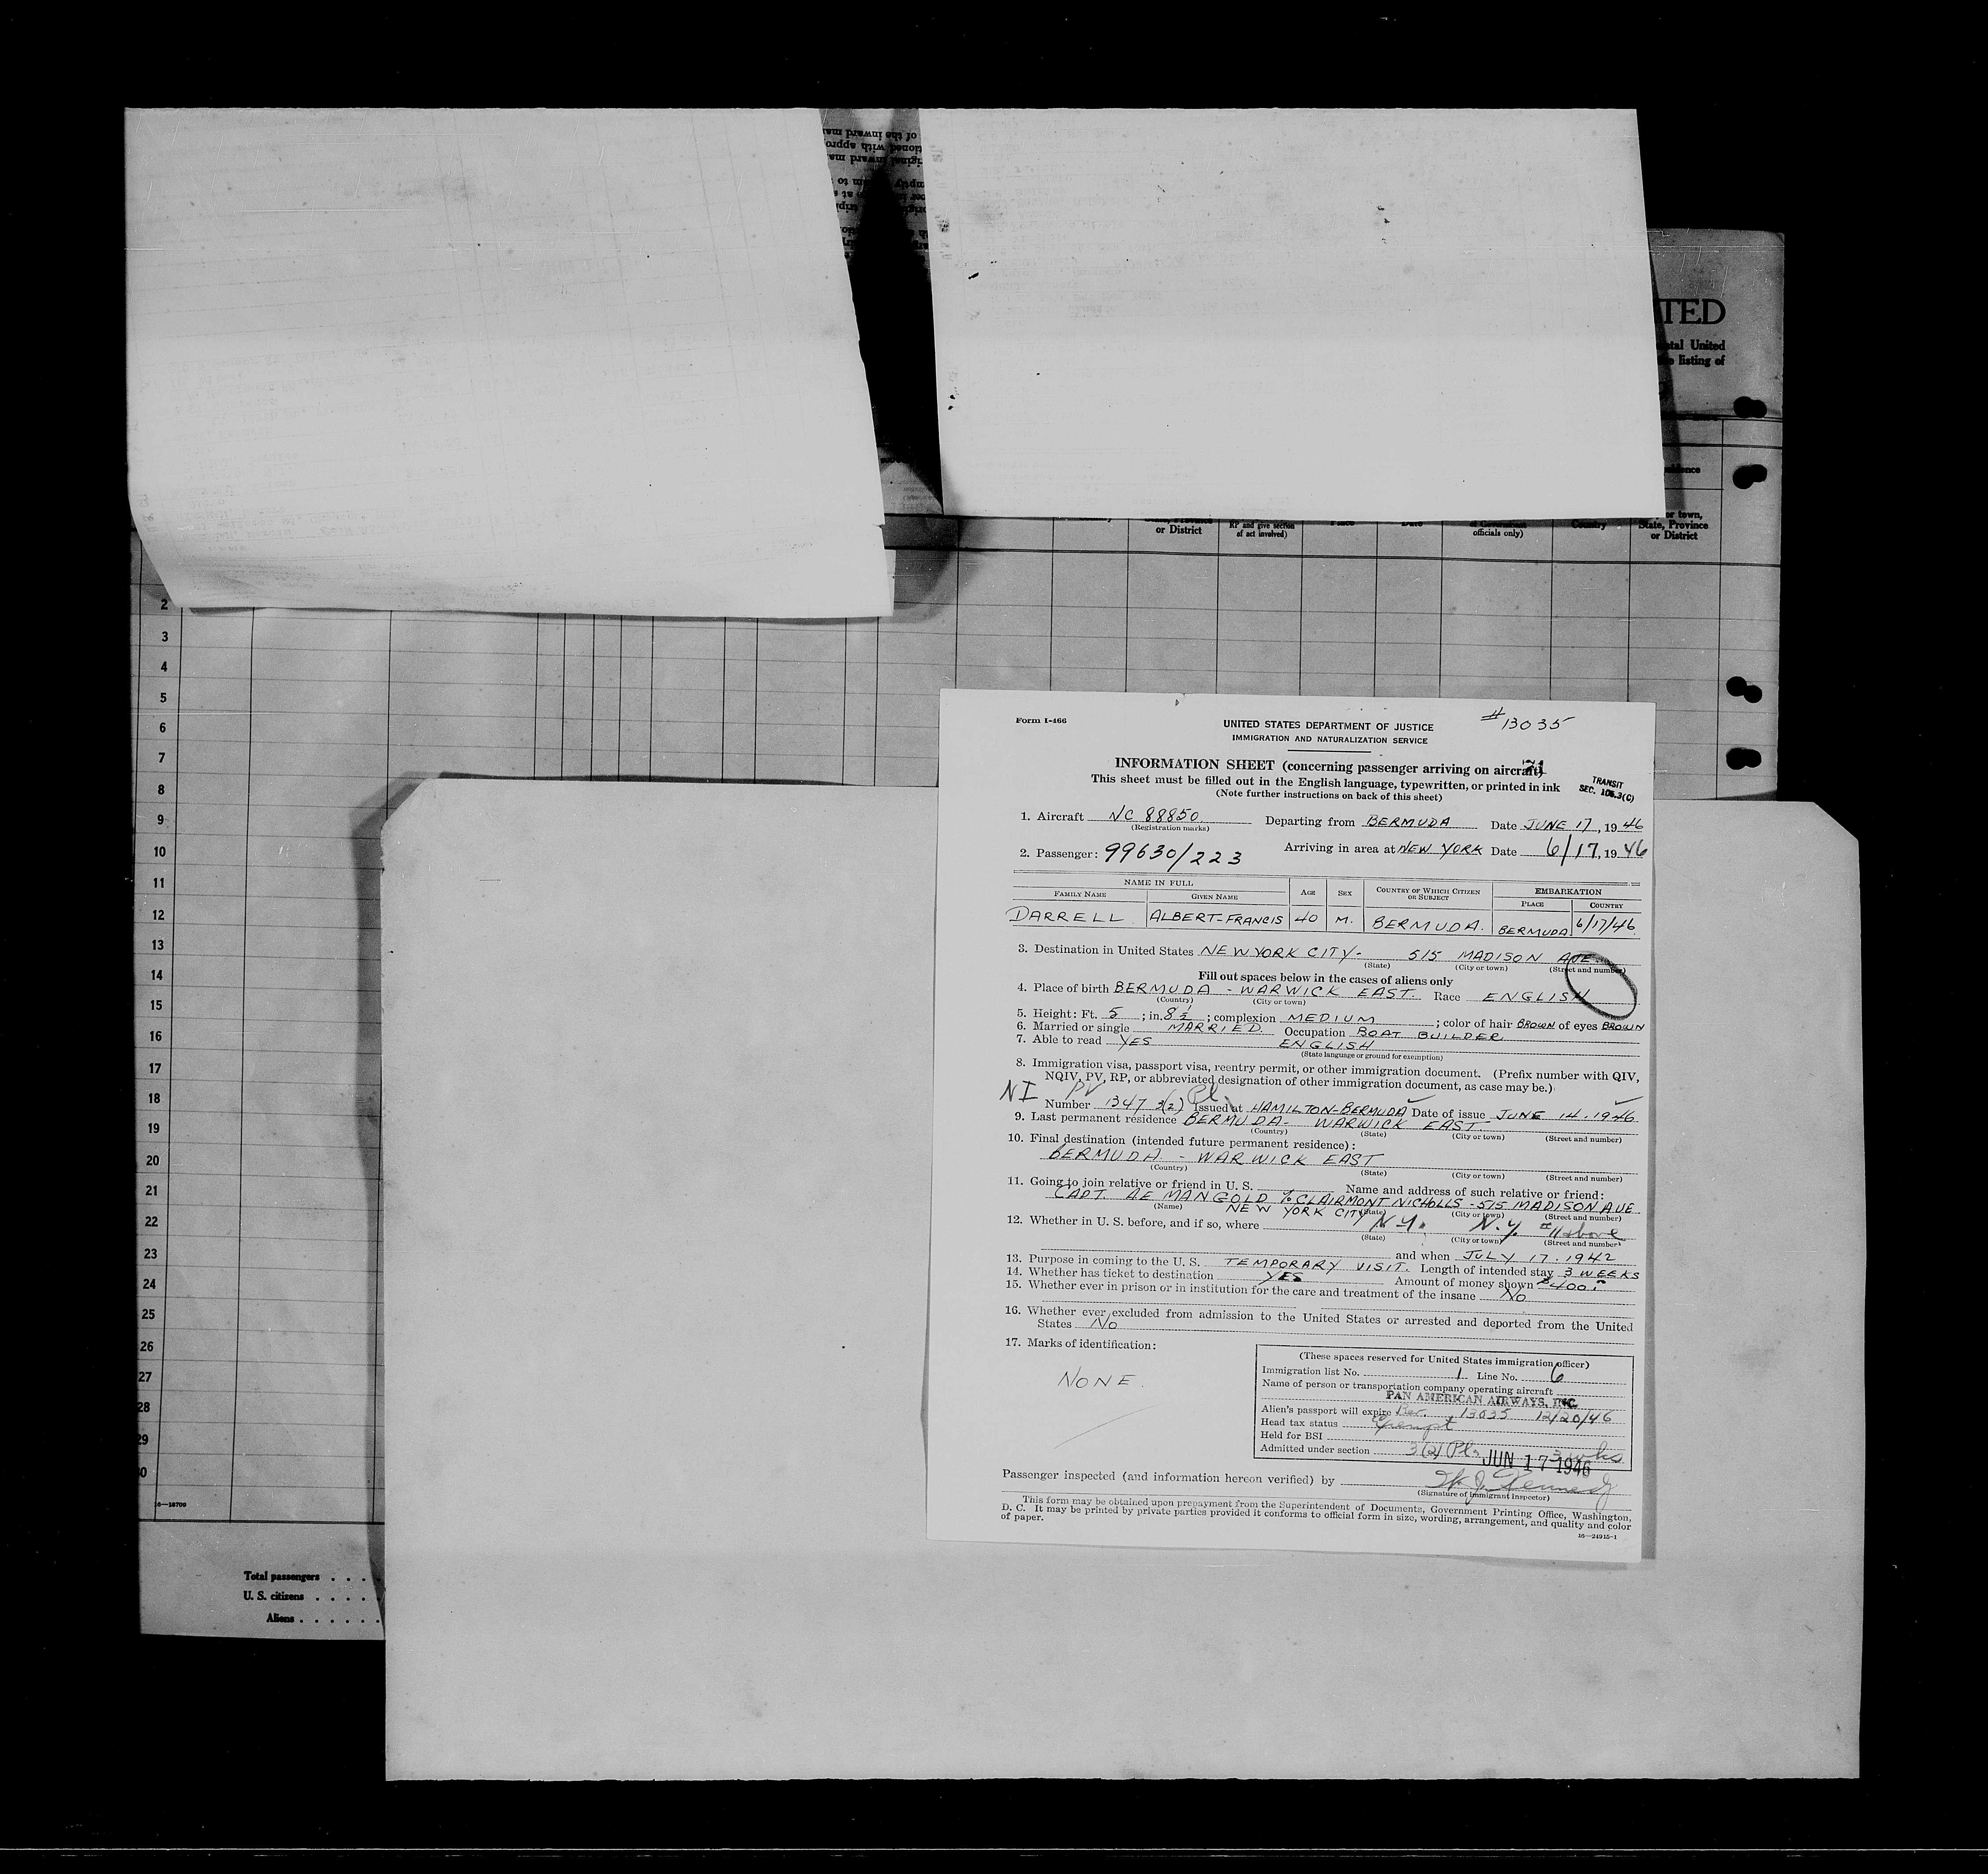 TED
tal United
listing of
or District
RP and give section
of act involved)
of Government
officials only)
Country
or town,
State, Province
or District
2
3
4
5
6
7
8
9
10
11
12
13
14
15
16
17
18
19
20
21
22
23
24
25
26
27
28
29
30
16—18709
Total passengers . . . .
U. S. citizens . . . . .
Aliens . . . . . .
Form I-466
#13035
UNITED STATES DEPARTMENT OF JUSTICE
IMMIGRATION AND NATURALIZATION SERVICE
INFORMATION SHEET (concerning passenger arriving on aircraft)
This sheet must be filled out in the English language, typewritten, or printed in ink
(Note further instructions on back of this sheet)
TRANSIT
SEC. 105.3(C)
1. Aircraft NC 88850 Departing from BERMUDA Date JUNE 17, 1946
(Registration marks)
2. Passenger: 99630/223 Arriving in area at NEW YORK Date 6/17, 1946
NAME IN FULL AGE SEX COUNTRY OF WHICH CITIZEN OR SUBJECT EMBARKATION
FAMILY NAME GIVEN NAME PLACE COUNTRY
DARRELL ALBERT-FRANCIS 40 M. BERMUDA. BERMUDA 6/17/46
3. Destination in United States NEW YORK CITY- 515 MADISON AVE.
(State) (City or town) (Street and number)
Fill out spaces below in the cases of aliens only
4. Place of birth BERMUDA - WARWICK EAST. Race ENGLISH
(Country) (City or town)
5. Height: Ft. 5 ; in. 8 1/2 ; complexion MEDIUM ; color of hair BROWN of eyes BROWN
6. Married or single MARRIED. Occupation BOAT BUILDER
7. Able to read YES ENGLISH
(State language or ground for exemption)
8. Immigration visa, passport visa, reentry permit, or other immigration document. (Prefix number with QIV,
NQIV, PV, RP, or abbreviated designation of other immigration document, as case may be.)
NI PV Pl.
Number 1347 3(2) Issued at HAMILTON-BERMUDA Date of issue JUNE 14. 1946
9. Last permanent residence BERMUDA- WARWICK EAST.
(Country) (State) (City or town) (Street and number)
10. Final destination (intended future permanent residence):
BERMUDA - WARWICK EAST
(Country) (State) (City or town) (Street and number)
11. Going to join relative or friend in U. S. Name and address of such relative or friend:
CAPT. AE MANGOLD % CLAIRMONT NICHOLLS - 515 MADISON AVE
(Name) NEW YORK CITY (State) (City or town) (Street and number)
12. Whether in U. S. before, and if so, where N.Y. N.Y. #11 above
(State) (City or town) (Street and number)
and when JULY 17. 1942
13. Purpose in coming to the U. S. TEMPORARY VISIT. Length of intended stay 3 WEEKS
14. Whether has ticket to destination YES Amount of money shown $400.
15. Whether ever in prison or in institution for the care and treatment of the insane No
16. Whether ever excluded from admission to the United States or arrested and deported from the United
States No
17. Marks of identification:
NONE.
(These spaces reserved for United States immigration officer)
Immigration list No. 1 Line No. 6
Name of person or transportation company operating aircraft
PAN AMERICAN AIRWAYS, INC.
Alien's passport will expire Ber. 13035 12/20/46
Head tax status Exempt
Held for BSI
Admitted under section 3(2) Pl. 3 wks
JUN 17 1946
Passenger inspected (and information hereon verified) by W. J. Kennedy
(Signature of immigrant inspector)
This form may be obtained upon prepayment from the Superintendent of Documents, Government Printing Office, Washington,
D. C. It may be printed by private parties provided it conforms to official form in size, wording, arrangement, and quality and color
of paper.
16—24915-1